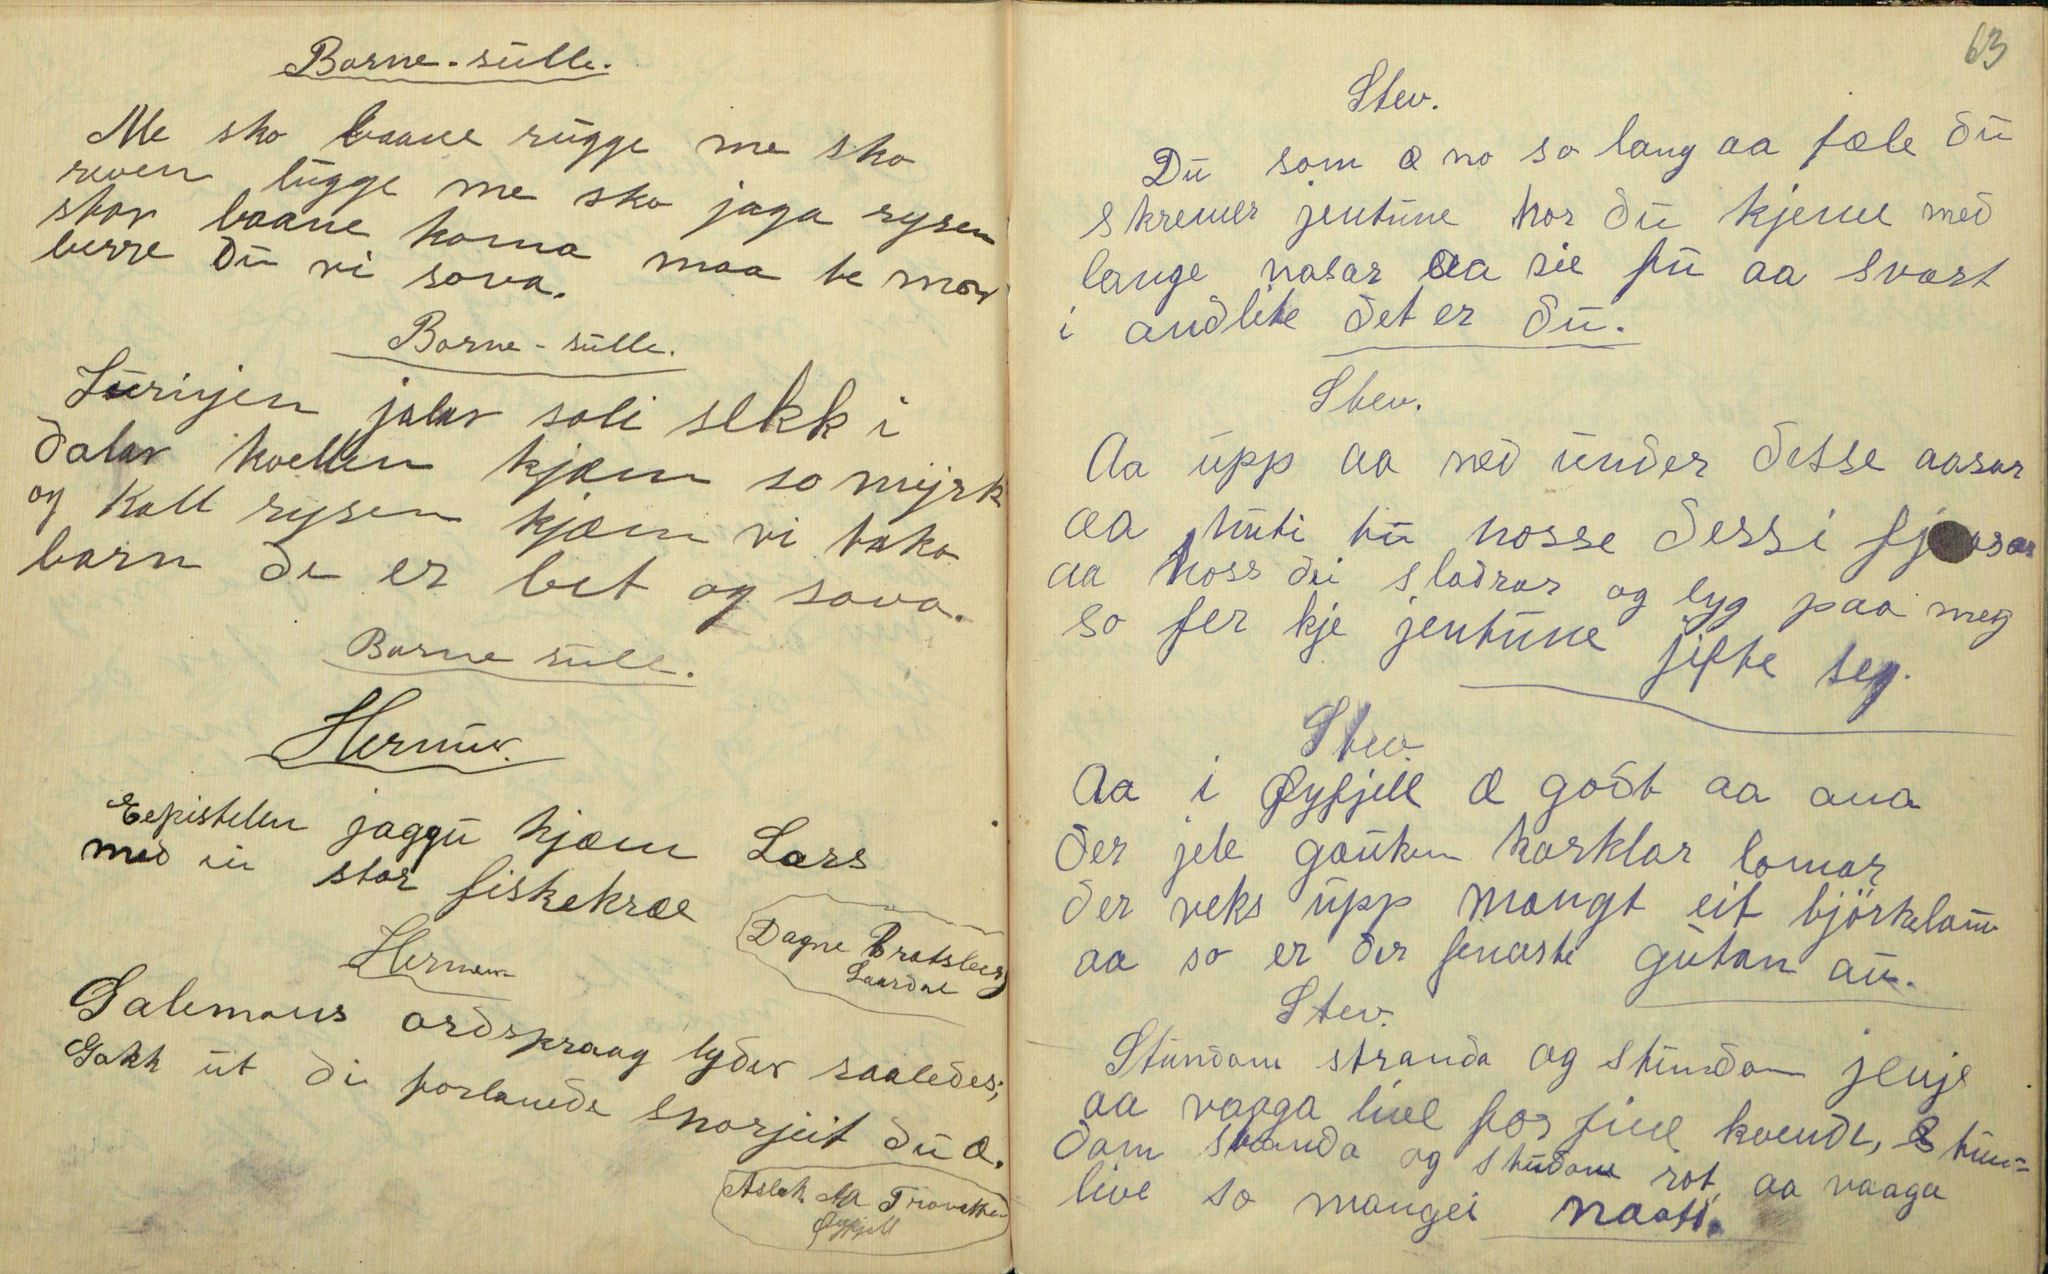 Borne-sulle.
Me sko baane rugge me sko
reven lugge me sko jaga rysen
stor baane koma maa te mor
berre du vi sova.
Borne-sulle.
Suringen jalar soli sekk i
dalar kvellen kjæm so myrk
og kall rysen kjæm vi taka
barn de er bet og sova.
Borne sull.
Hermur.
Eepistelen jaggu kjæm Lars
med ei stor fiskekræe
Dagne Bratsberg
Laardal
Hermur
Salemons ordspraag lyder saaledes;
Gakk ut di forlanede snorjeit du æ.
Aslak Aa Trovatten
Øyfjell
63
Stev.
Du som æ no so lang aa fæle du
skremer jentune kor du kjeme med
lange nasar aa sie fu aa svart
i andlite det er du.
Stev.
Aa upp aa ned under desse aasar
aa huti tu hosse dessi fjosar
aa koss dei sladrar og lyg paa meg
so fer kje jentune jifte seg.
Stev.
Aa i Øyfjell æ godt aa ana
der jele gauken karklar lomar
der veks upp mangt eit björkelauv
aa so er der fenaste gutan au.
Stev.
Stundom stranda og stundom jenje
aa vaaga live for fiee kvende, stun=
dom stranda og studom rot aa vaaga
live so mangei naatt.